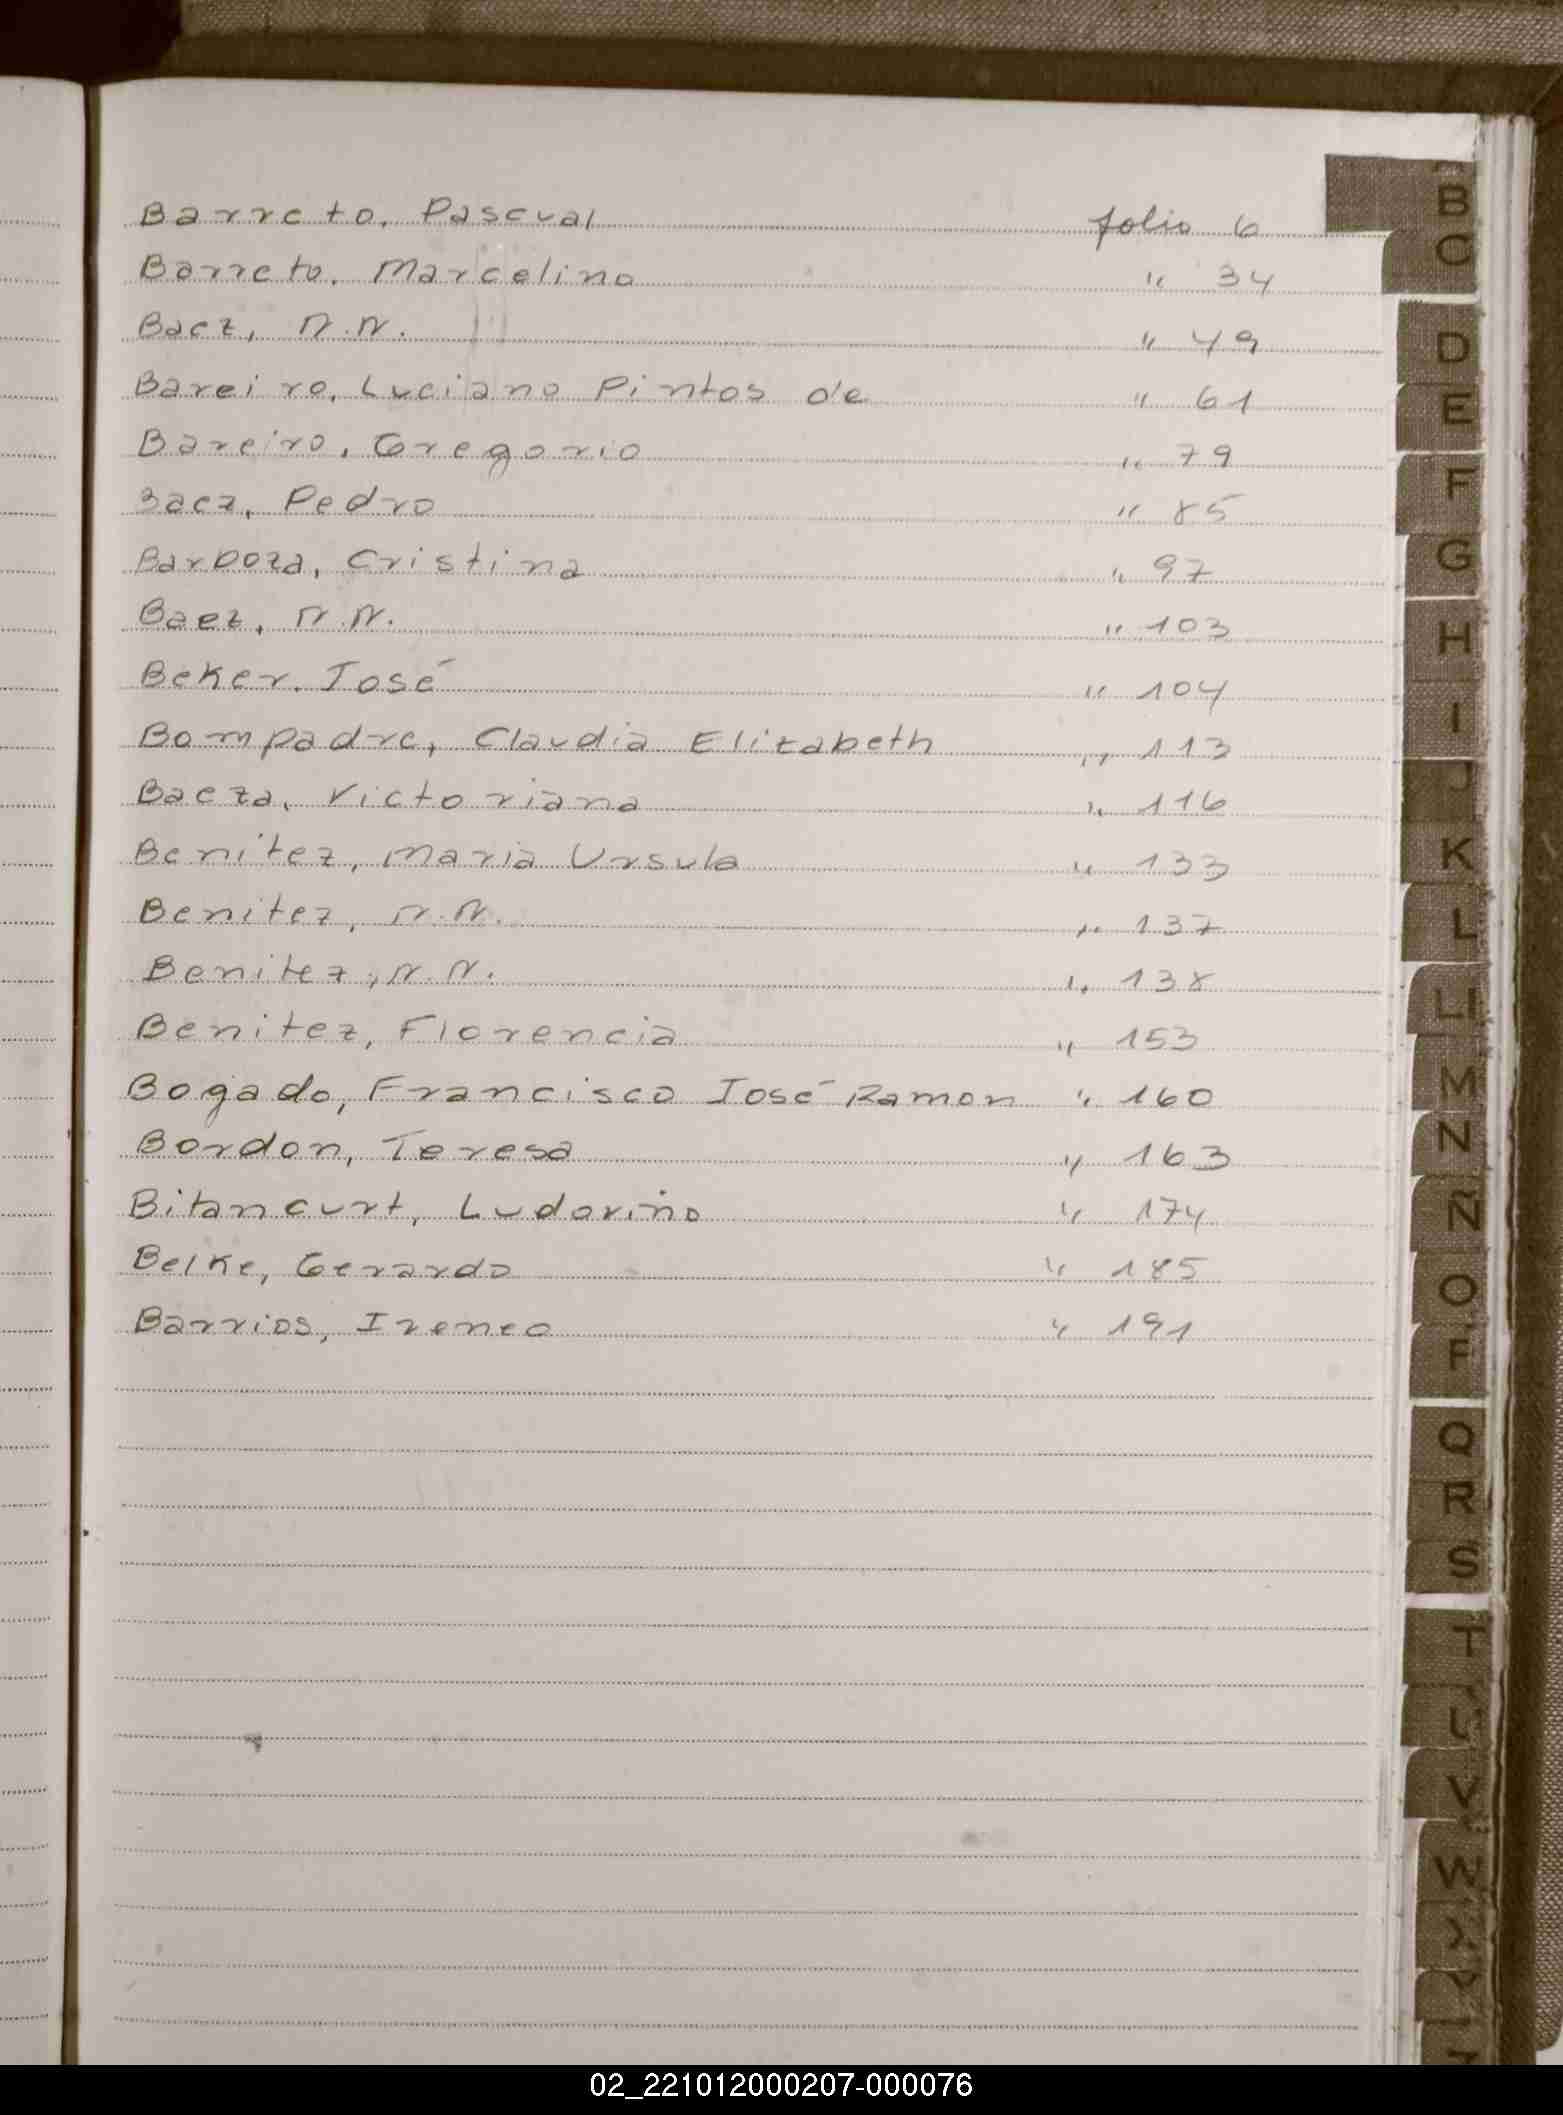 Barreto, Pascual folio 6
Barreto, Marcelino " 34
Baez, N.N. " 49
Bareiro, Luciano Pintos de " 61
Bareiro, Gregorio " 79
Baez, Pedro " 85
Barboza, Cristina " 97
Baez, N.N. " 103
Beker, José " 104
Bompadre, Claudia Elizabeth " 113
Baeza, Victoriana " 116
Benitez, Maria Ursula " 133
Benitez, N.N. " 137
Benitez, N.N. " 138
Benitez, Florencia " 153
Bogado, Francisco José Ramon " 160
Bordon, Teresa " 163
Bitancurt, Ludovino " 174
Belke, Gerardo " 185
Barrios, Ireneo " 191
B
C
D
E
F
G
H
I
J
K
L
Ll
M
N
Ñ
O
P
Q
R
S
T
U
V
W
X
Y
Z
02_221012000207-000076